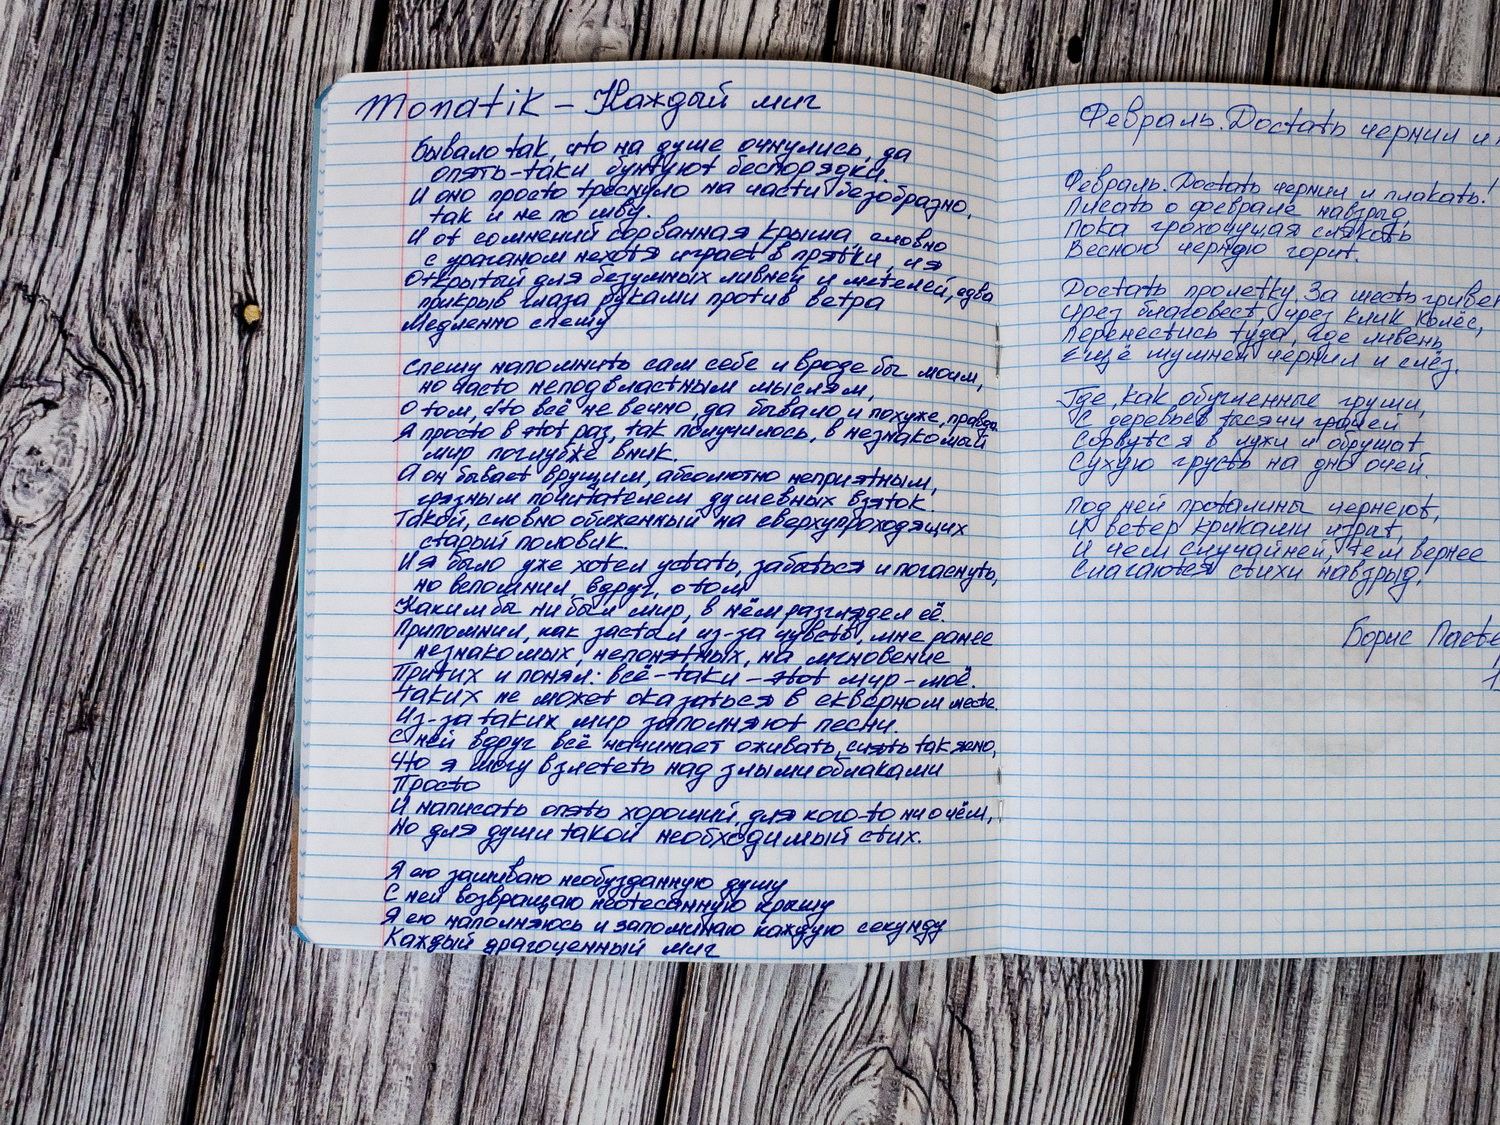 Monatik – Каждый миг
Бывало так, что на душе очнулись, да
опять-таки бунтуют беспорядки.
И оно просто треснуло на части безобразно,
так и не по шву.
И от сомнений сорванная крыша, словно
с ураганом нехотя играет в прятки, и я
Открытый для безумных ливней и метелей, едва
прикрыв глаза руками против ветра
Медленно спешу
Спешу напомнить сам себе и вроде бы моим,
но часто неподвластным мыслям,
О том, что всё не вечно, да бывало и похуже, правда
Я просто в этот раз, так получилось, в незнакомый
мир поглубже вник.
А он бывает врущим, абсолютно неприятным,
грязным почитателем душевных взяток.
Такой, словно обиженный на сверхупроходящих
старый половик.
И я было уже хотел устать, забыться и погаснуть,
но вспомнил, вдруг, о том
Каким бы ни был мир, в нём разглядел её.
Припомнил, как застыл из-за чувств, мне ранее
незнакомых, непонятных, на мгновение
Притих и понял: всё-таки – этот мир – моё.
Таких не может оказаться в скверном месте.
Из-за таких мир заполняют песни.
С ней вдруг всё начинает оживать, сиять так ясно,
Что я могу взлететь над злыми облаками
Просто
И написать опять хороший, для кого-то ни о чём,
Но для души такой необходимый стих.
Я ею зашиваю необузданную душу
С ней возвращаю неотесанную крышу
Я ею наполняюсь и запоминаю каждую секунду
Каждый драгоценный миг
Февраль. Достать чернил и п
Февраль. Достать чернил и плакать!
Писать о феврале навзрыд,
Пока грохочущая слякоть
Весною черною горит.
Достать пролетку. За шесть гривен
Чрез благовест, чрез клик колёс,
Перенестись туда, где ливень
Ещё шумней чернил и слёз.
Где, как обугленные груши,
С деревьев тысячи грачей
Сорвутся в лужи и обрушат
Сухую грусть на дно очей.
Под ней проталины чернеют,
И ветер криками изрыт,
И чем случайней, тем вернее
Слагаются стихи навзрыд!
Борис Пастер
1